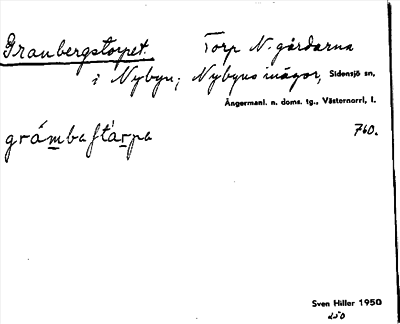 Granbergstorpet. Torp N. gårdarna
i Nybyn; Nybyns inägor, Sidensjö sn,
Ångermanl. n. doms. tg., Västernorrl. l.
gråmbaʃtårpa 760.
Sven Hiller 1950